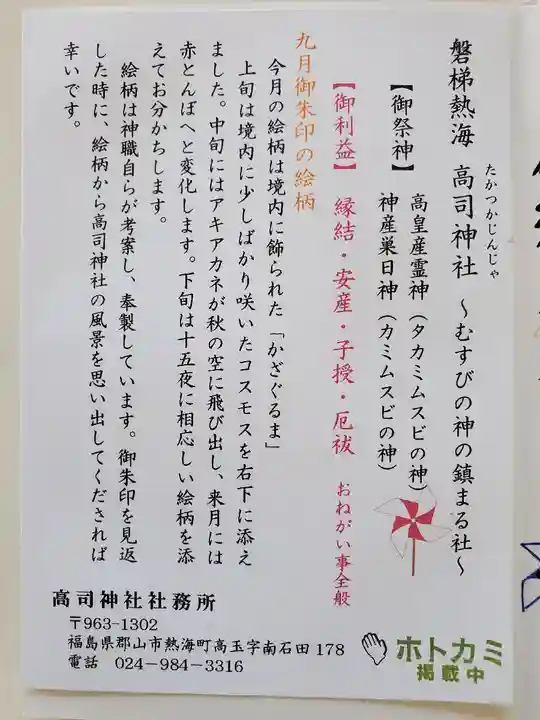 磐梯熱海 高司神社 ～むすびの神の鎮まる社～
たかつかじんじゃ
【御祭神】 高皇産霊神(タカミムスビの神)
神産巣日神(カミムスビの神)
【御利益】 縁結・安産・子授・厄祓 おねがい事全般
九月御朱印の絵柄
今月の絵柄は境内に飾られた「かざぐるま」
上旬は境内に少しばかり咲いたコスモスを右下に添え
ました。中旬にはアキアカネが秋の空に飛び出し、来月には
赤とんぼへと変化します。下旬は十五夜に相応しい絵柄を添
えてお分かちします。
絵柄は神職自らが考案し、奉製しています。御朱印を見返
した時に、絵柄から高司神社の風景を思い出してくだされば
幸いです。
高司神社社務所
〒963-1302
福島県郡山市熱海町高玉字南石田178
電話 024-984-3316
ホトカミ
掲載中